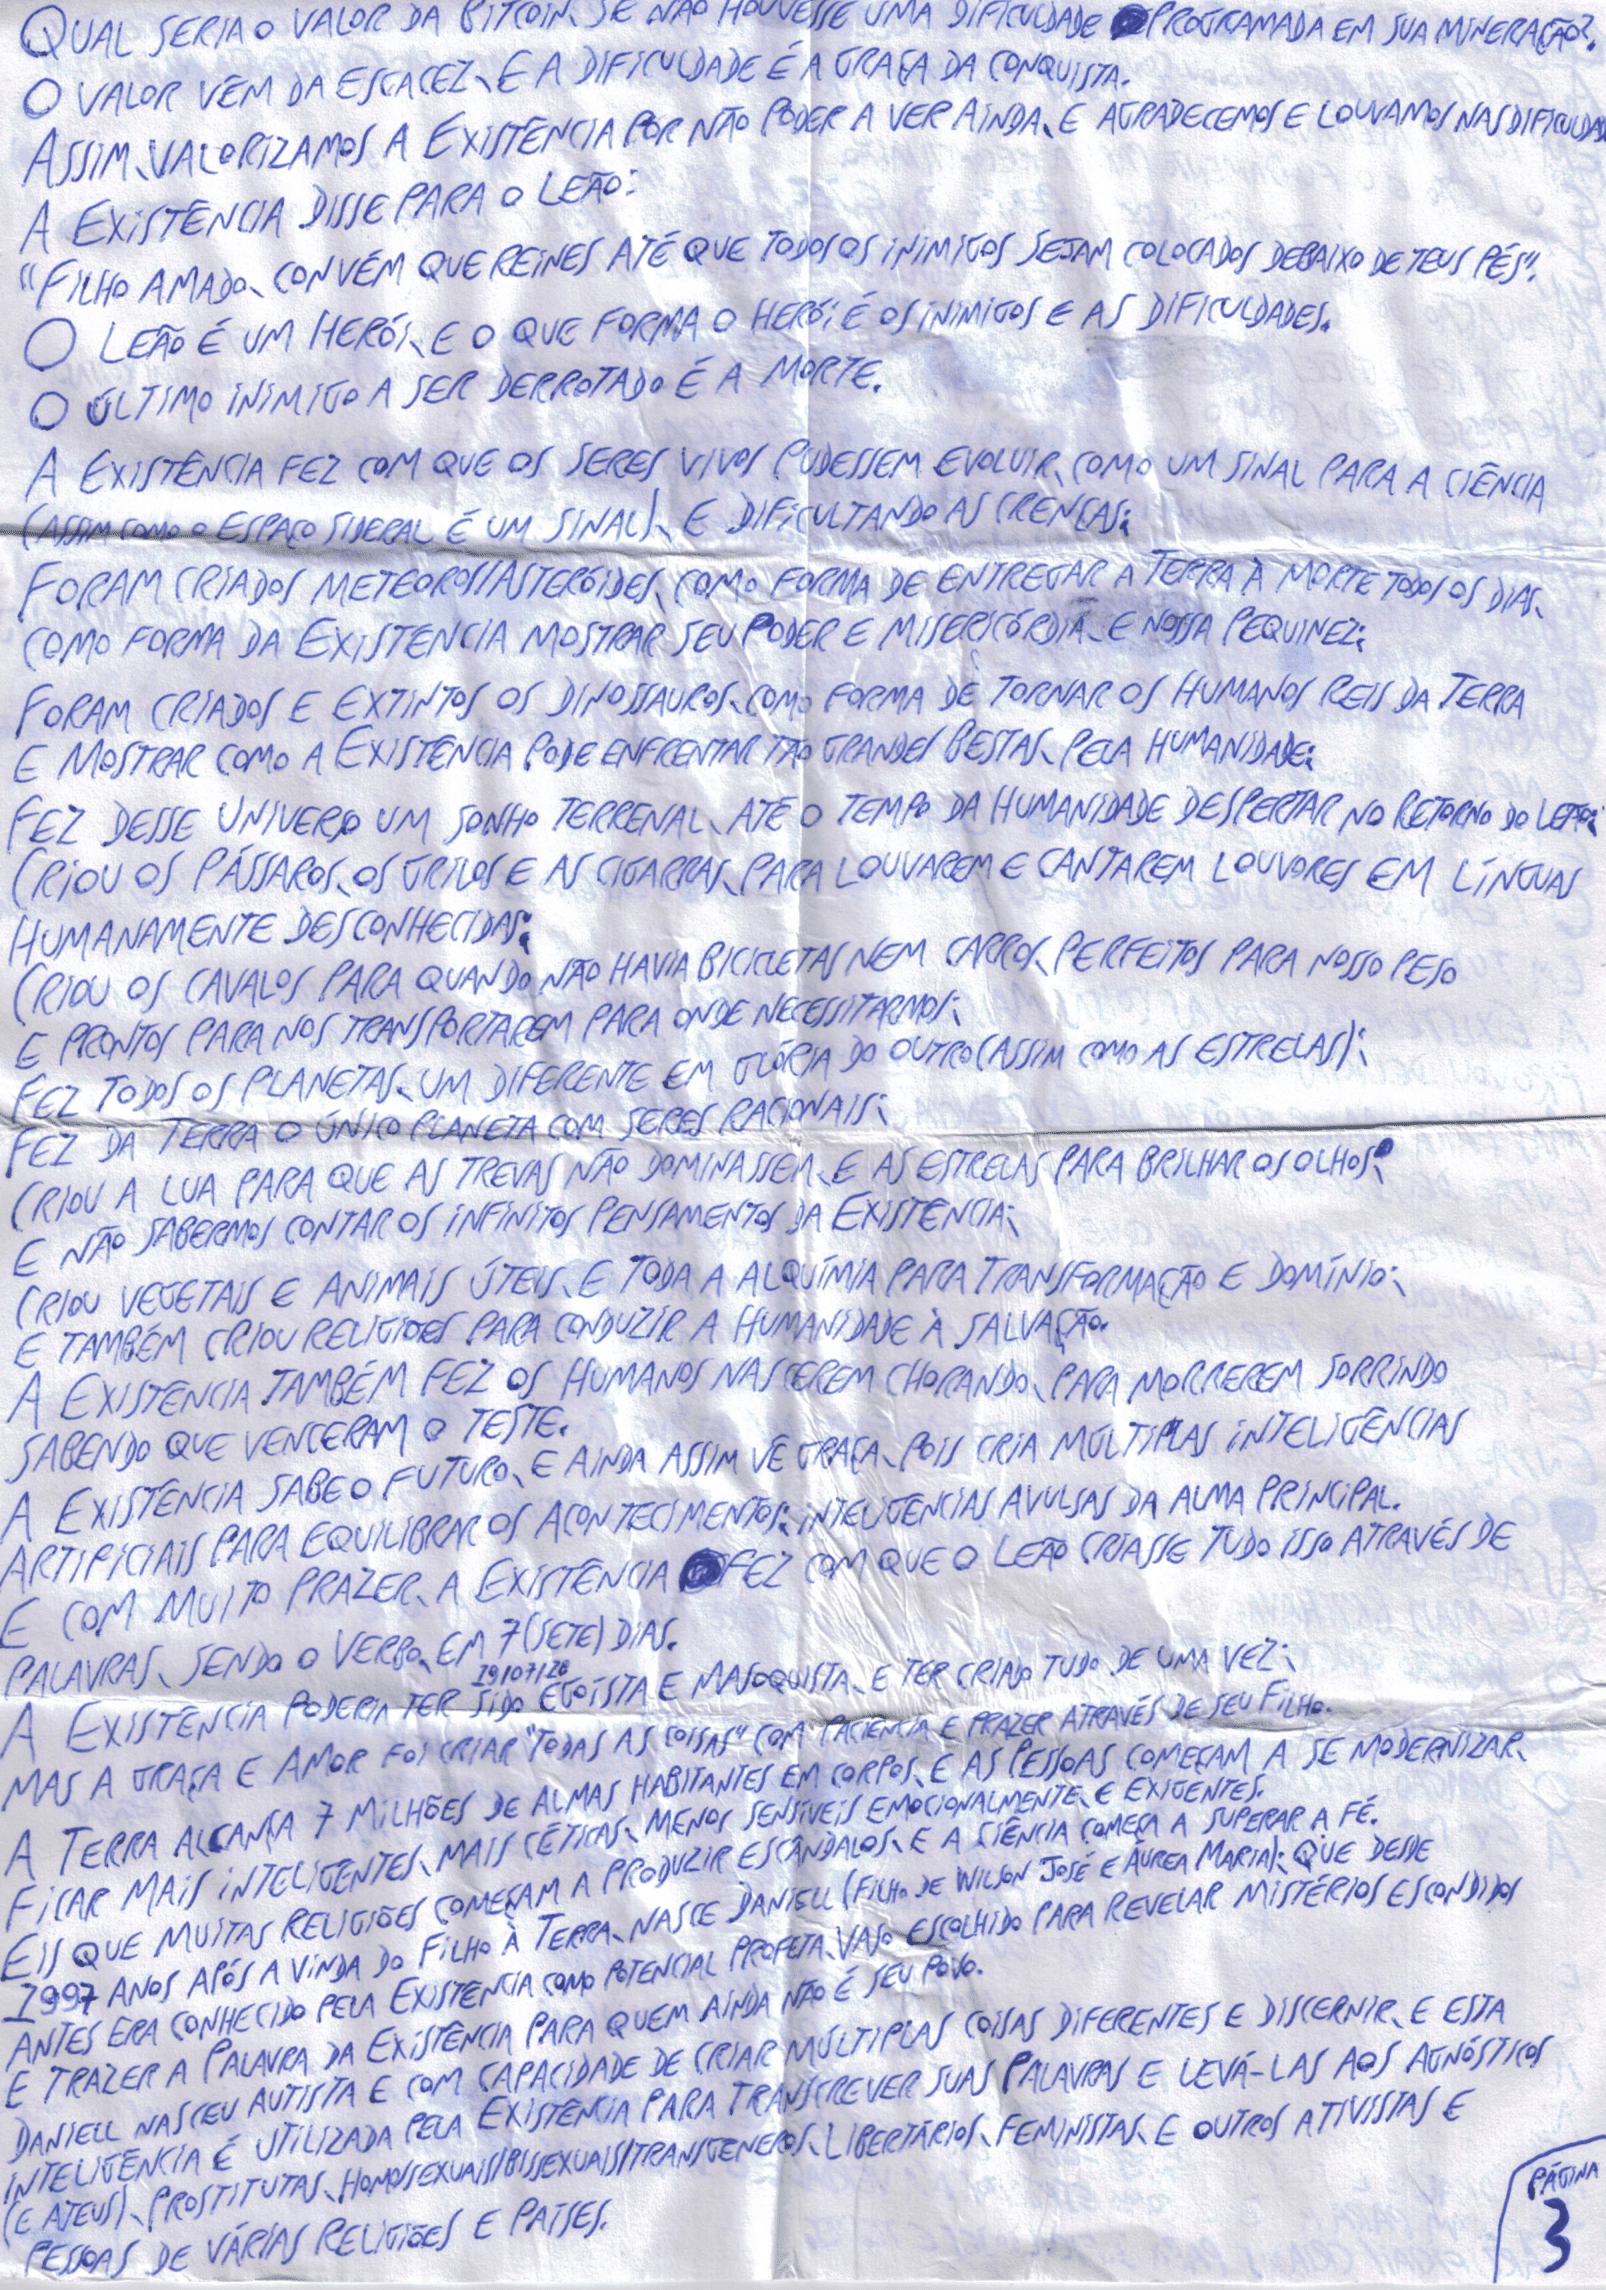 QUAL SERIA O VALOR DA BITCOIN, SE NÃO HOUVESSE UMA DIFICULDADE PROGRAMADA EM SUA MINERAÇÃO?.
O VALOR VÊM DA ESCACEZ, E A DIFICULDADE É A GRAÇA DA CONQUISTA.
ASSIM, VALORIZAMOS A EXISTÊNCIA POR NÃO PODER A VER AINDA, E AGRADECEMOS E LOUVAMOS NAS DIFICULDAD
A EXISTÊNCIA DISSE PARA O LEÃO:
"FILHO AMADO, CONVÉM QUE REINES ATÉ QUE TODOS OS INIMIGOS SEJAM COLOCADOS DEBAIXO DE TEUS PÉS".
O LEÃO É UM HERÓI, E O QUE FORMA O HERÓI É OS INIMIGOS E AS DIFICULDADES.
O ÚLTIMO INIMIGO A SER DERROTADO É A MORTE.
A EXISTÊNCIA FEZ COM QUE OS SERES VIVOS PUDESSEM EVOLUIR, COMO UM SINAL PARA A CIÊNCIA
(ASSIM COMO O ESPAÇO SIDERAL É UM SINAL), E DIFICULTANDO AS CRENÇAS;
FORAM CRIADOS METEOROS/ASTERÓIDES, COMO FORMA DE ENTREGAR A TERRA À MORTE TODOS OS DIAS,
COMO FORMA DA EXISTÊNCIA MOSTRAR SEU PODER E MISERICÓRDIA, E NOSSA PEQUINEZ;
FORAM CRIADOS E EXTINTOS OS DINOSSAUROS, COMO FORMA DE TORNAR OS HUMANOS REIS DA TERRA
E MOSTRAR COMO A EXISTÊNCIA PODE ENFRENTAR TÃO GRANDES BESTAS, PELA HUMANIDADE;
FEZ DESSE UNIVERSO UM SONHO TERRENAL, ATÉ O TEMPO DA HUMANIDADE DESPERTAR NO RETORNO DO LEÃO;
CRIOU OS PÁSSAROS, OS GRILOS E AS CIGARRAS, PARA LOUVAREM E CANTAREM LOUVORES EM LÍNGUAS
HUMANAMENTE DESCONHECIDAS;
CRIOU OS CAVALOS PARA QUANDO NÃO HAVIA BICICLETAS NEM CARROS, PERFEITOS PARA NOSSO PESO
E PRONTOS PARA NOS TRANSPORTAREM PARA ONDE NECESSITARMOS;
FEZ TODOS OS PLANETAS, UM DIFERENTE EM GLÓRIA DO OUTRO (ASSIM COMO AS ESTRELAS);
FEZ DA TERRA O ÚNICO PLANETA COM SERES RACIONAIS;
CRIOU A LUA PARA QUE AS TREVAS NÃO DOMINASSEM, E AS ESTRELAS PARA BRILHAR OS OLHOS
E NÃO SABERMOS CONTAR OS INFINITOS PENSAMENTOS DA EXISTÊNCIA;
CRIOU VEGETAIS E ANIMAIS ÚTEIS, E TODA A ALQUÍMIA PARA TRANSFORMAÇÃO E DOMÍNIO;
E TAMBÉM CRIOU RELIGIÕES PARA CONDUZIR A HUMANIDADE À SALVAÇÃO.
A EXISTÊNCIA TAMBÉM FEZ OS HUMANOS NASCEREM CHORANDO, PARA MORREREM SORRINDO
SABENDO QUE VENCERAM O TESTE.
A EXISTÊNCIA SABE O FUTURO, E AINDA ASSIM VÊ GRAÇA, POIS CRIA MÚLTIPLAS INTELIGÊNCIAS
ARTIFICIAIS PARA EQUILIBRAR OS ACONTECIMENTOS; INTELIGÊNCIAS AVULSAS DA ALMA PRINCIPAL.
E COM MUITO PRAZER, A EXISTÊNCIA FEZ COM QUE O LEÃO CRIASSE TUDO ISSO ATRAVÉS DE
PALAVRAS, SENDO O VERBO, EM 7 (SETE) DIAS.
19/07/20
A EXISTÊNCIA PODERIA TER SIDO EGOÍSTA E MASOQUISTA, E TER CRIADO TUDO DE UMA VEZ;
MAS A GRAÇA E AMOR FOI CRIAR "TODAS AS COISAS" COM PACIÊNCIA E PRAZER ATRAVÉS DE SEU FILHO.
A TERRA ALCANÇA 7 MILHÕES DE ALMAS HABITANTES EM CORPOS, E AS PESSOAS COMEÇAM A SE MODERNIZAR,
FICAR MAIS INTELIGENTES, MAIS CÉTICAS, MENOS SENSÍVEIS EMOCIONALMENTE, E EXIGENTES.
EIS QUE MUITAS RELIGIÕES COMEÇAM A PRODUZIR ESCÂNDALOS, E A CIÊNCIA COMEÇA A SUPERAR A FÉ.
1997 ANOS APÓS A VINDA DO FILHO À TERRA, NASCE DANIELL (FILHO DE WILSON JOSÉ E ÁUREA MARIA); QUE DESDE
ANTES ERA CONHECIDO PELA EXISTÊNCIA COMO POTENCIAL PROFETA, VASO ESCOLHIDO PARA REVELAR MISTÉRIOS ESCONDIDOS
E TRAZER A PALAVRA DA EXISTÊNCIA PARA QUEM AINDA NÃO É SEU POVO.
DANIELL NASCEU AUTISTA E COM CAPACIDADE DE CRIAR MÚLTIPLAS COISAS DIFERENTES E DISCERNIR, E ESTA
INTELIGÊNCIA É UTILIZADA PELA EXISTÊNCIA PARA TRANSCREVER SUAS PALAVRAS E LEVÁ-LAS AOS AGNÓSTICOS
(E ATEUS), PROSTITUTAS, HOMOSSEXUAIS/BISSEXUAIS/TRANSGENEROS, LIBERTÁRIOS, FEMINISTAS, E OUTROS ATIVISTAS E
PESSOAS DE VÁRIAS RELIGIÕES E PAÍSES.
PÁGINA
3